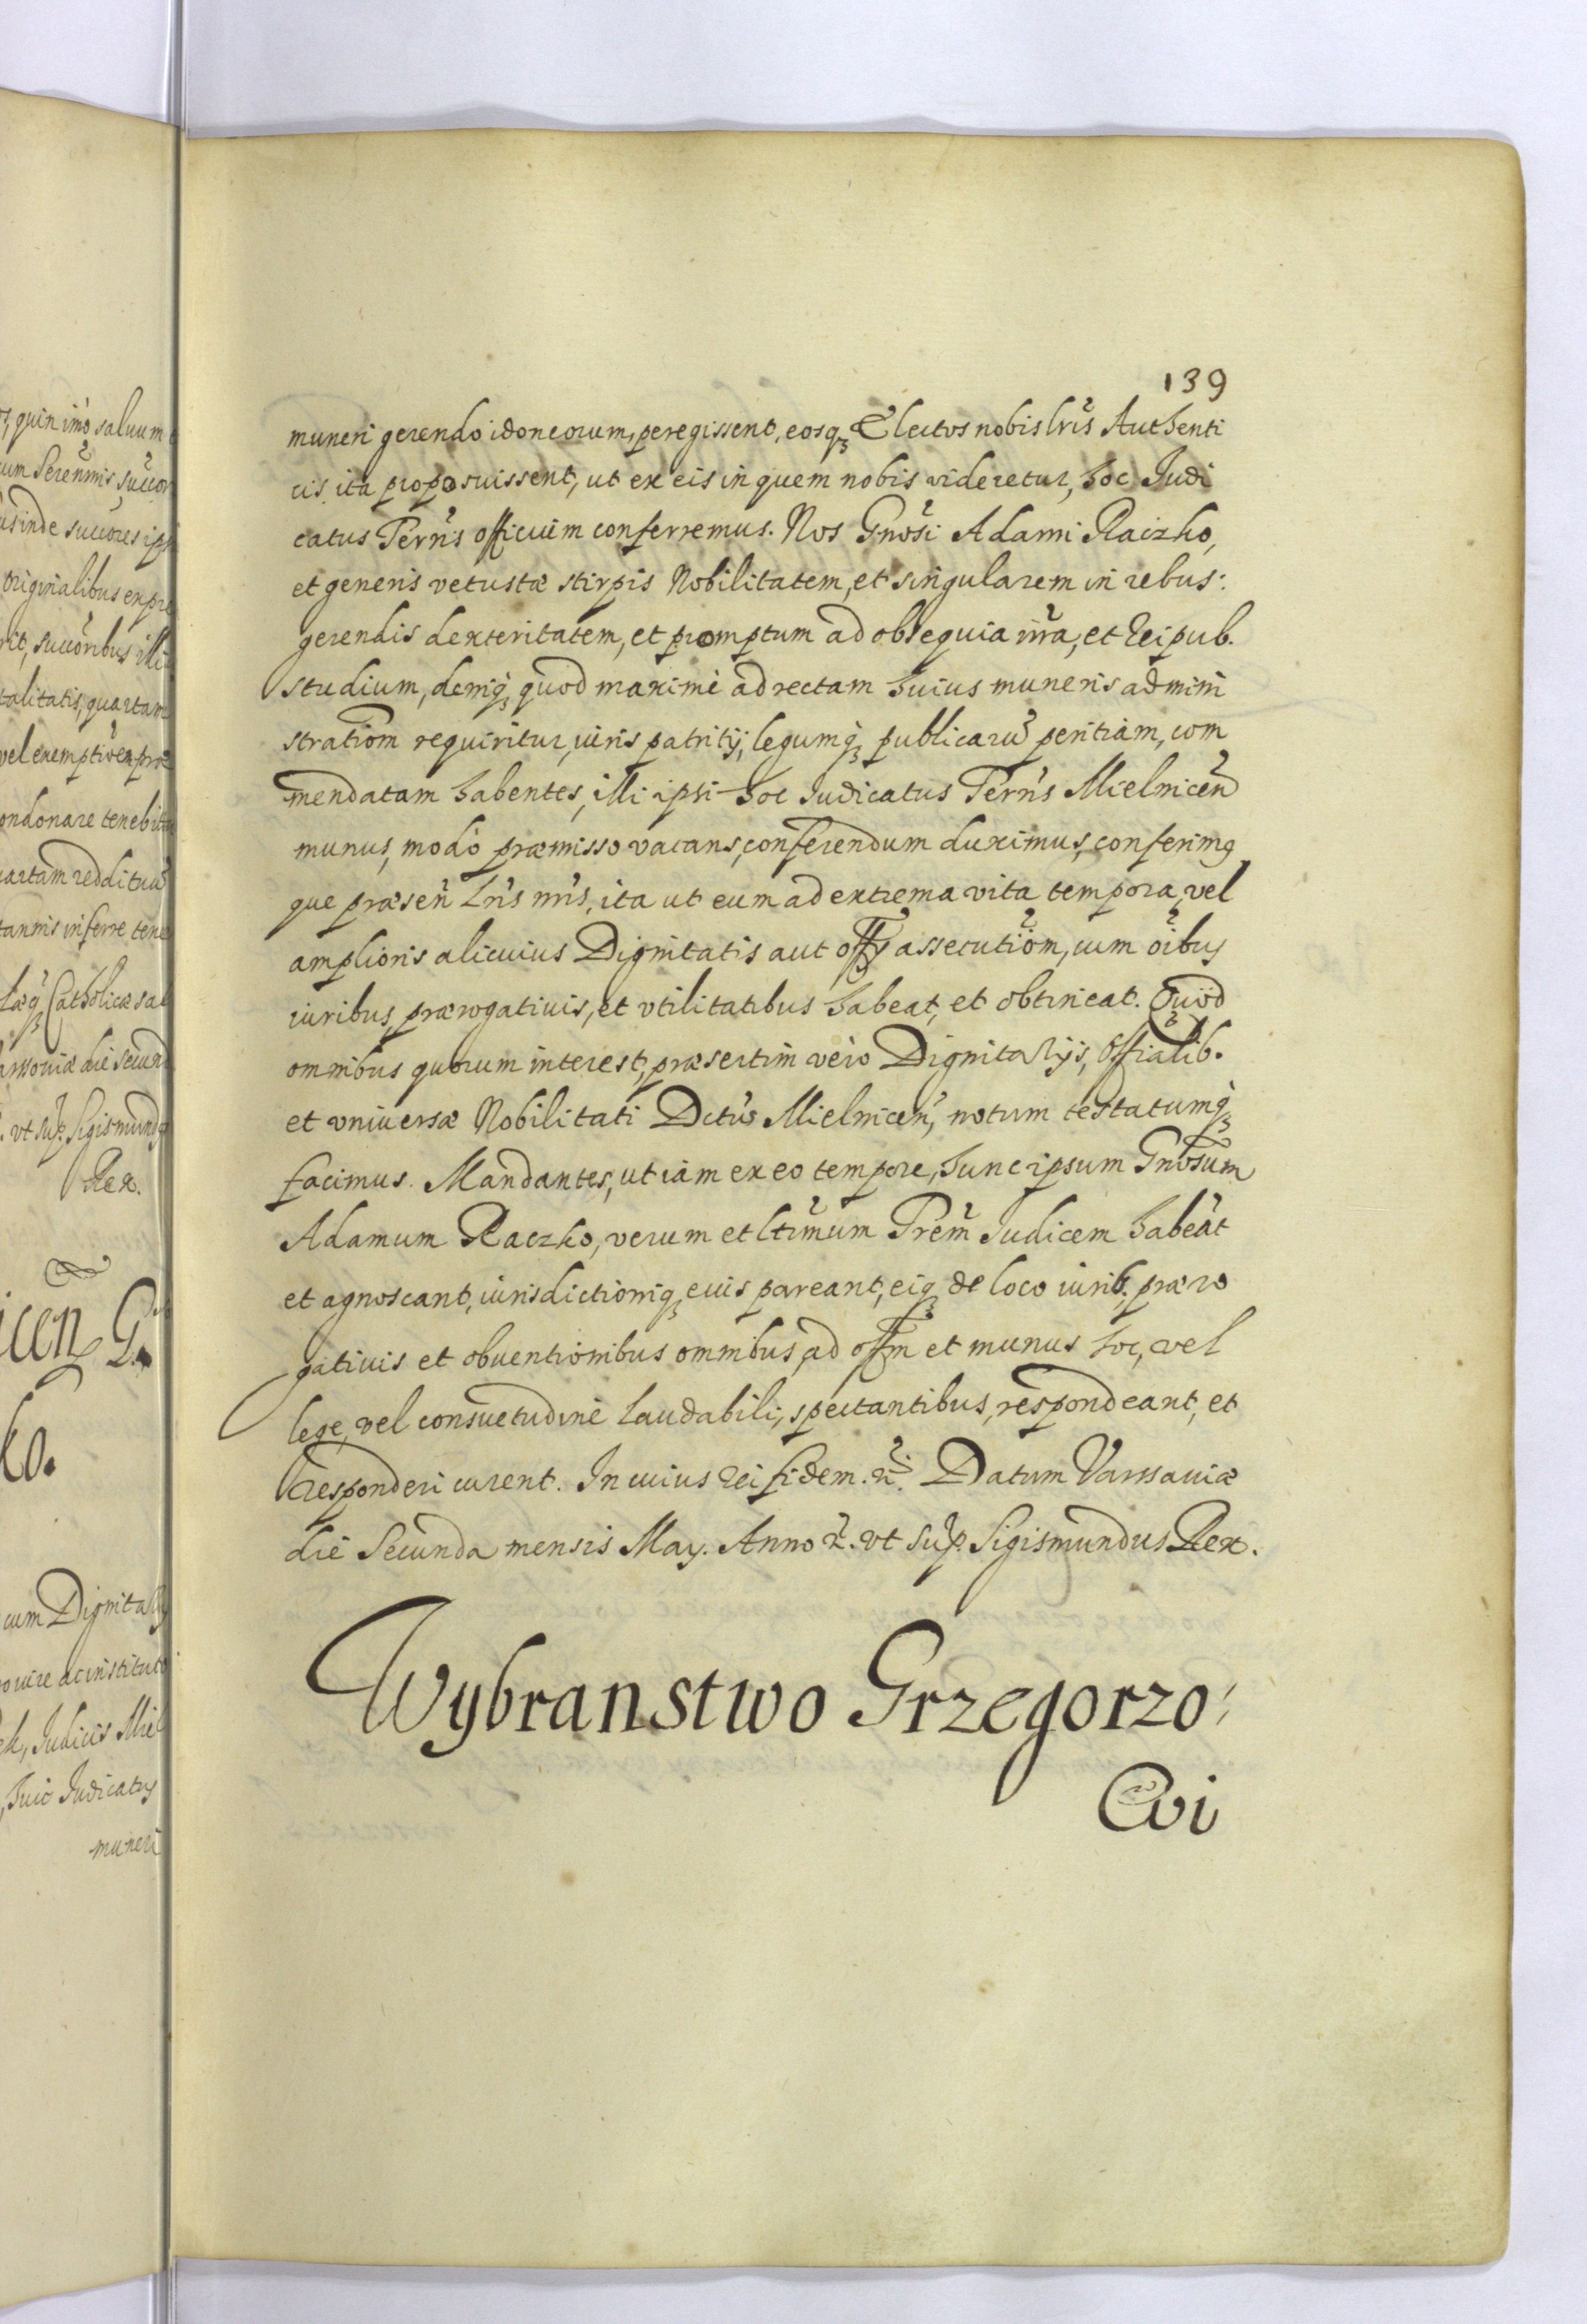 139
muneri gerendo idoneorum, peregissent, eosq₃ Electos nobis lr̃is Authenti
cis ita proposuissent, ut ex eis in quem nobis videretur, hoc Judi
catus Terr̃is officium conferremus. Nos Gnõsi Adami Raczko,
et generis vetustæ stirpis Nobilitatem, et singularem in rebus:
gerendis dexteritatem, et promptum ad obsequia nr̃a, et Reipub.
studium, deniq₃ quod maximè ad rectam huius muneris admini
stratiõm requiritur, iuris patritij, legumq₃ publicarũ peritiam, com
mendatam habentes, illi ipsi hoc Judicatus Terr̃is Mielnicẽn
munus, modo præmisso vacans, conferendum duximus, conferimq
que præseñ Lr̃is nr̃is, ita ut eum ad extrema vita tempora, vel
amplioris alicuius Dignitatis aut offӳ assecutiõm, cum oĩbus
iuribus, prærogatiuis, et vtilitatibus habeat, et obtineat. Quod
omnibus quorum interest, præsertim vero Dignitarijs, Offialib.
et vniuersæ Nobilitati Dctũs Mielniceñ, notum testatumq₃
facimus. Mandantes, ut iam ex eo tempore, hunc ipsum Gnõsum
Adamum Raczko, verum et ltĩmum Trem̃ Judicem habeãt
et agnoscant, iurisdictioniq₃ euis pareant, eiq₃ de loco iurib. præro
gatiuis et obuentionibus omnibus, ad offm̃ et munus hoc, vel
lege, vel consuetudine laudabili, spectantibus, respondeant, et
responderi curent. In cuius rei fidem. &̃. Datum Varssauiæ
die Secunda mensis May. Anno &̃. vt sup̃. Sigismundus Rex.
Wybranstwo Grzegorzo:
Cvi
quin imo saluum
um Serenmis, succor
inde succores ips
originalibus expre
rit, succoribus illi
talitatis, quartam
vel exemptiõen præ
ondonare teneb
artam reddituũ
tannis inferre tene
Catholicæ sa
arssouiæ die Secund
vt sup̃. Sigismundq
Rex.
iceñ G.
ko.
cum Dignita
iure ac institut
ek, Judicis Miel
huic Judicatus
muneri